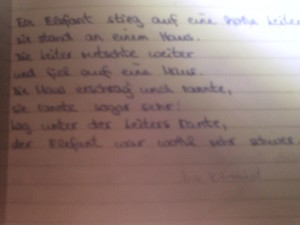 Ein Elefant stieg auf eine hohe Leiter
sie stand an einem Haus.
Die Leiter rutschte weiter
und fiel auf eine Maus.
Die Maus erschrag und rannte,
sie rannte sogar sehr!
lag unter der Leiters Kante,
der Elefant war wohl sehr schwer.